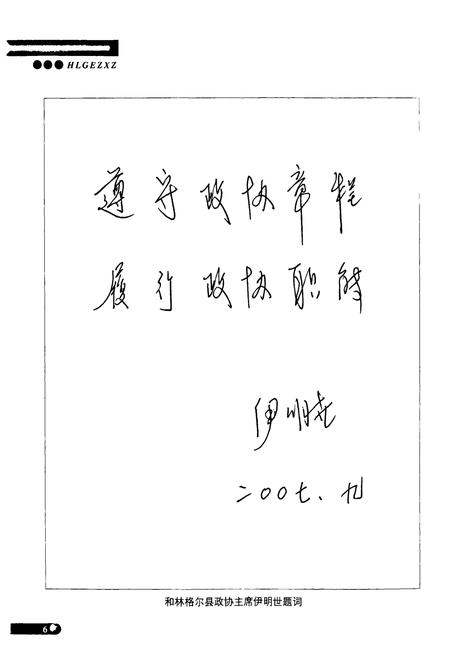 HLGEZXZ
遵守政协章程
履行政协职能
伊明世
二〇〇七、九
和林格尔县政协主席伊明世题词
6